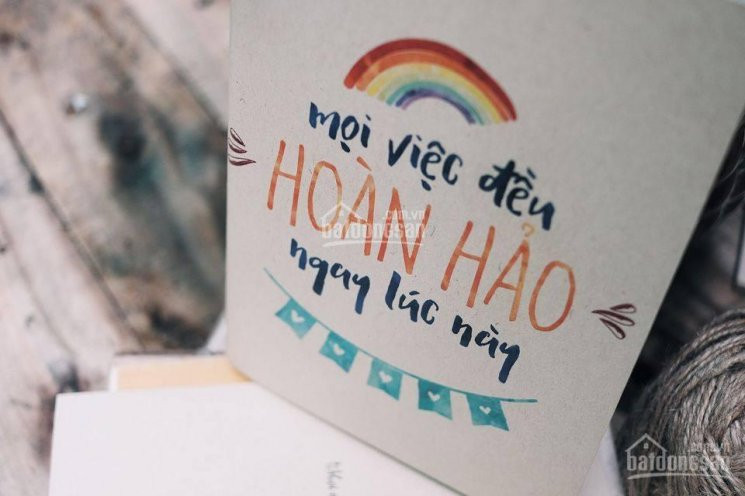 mọi việc đều
HOÀN HẢO
ngay lúc này
batdongsan.com.vn
batdongsan.com.vn